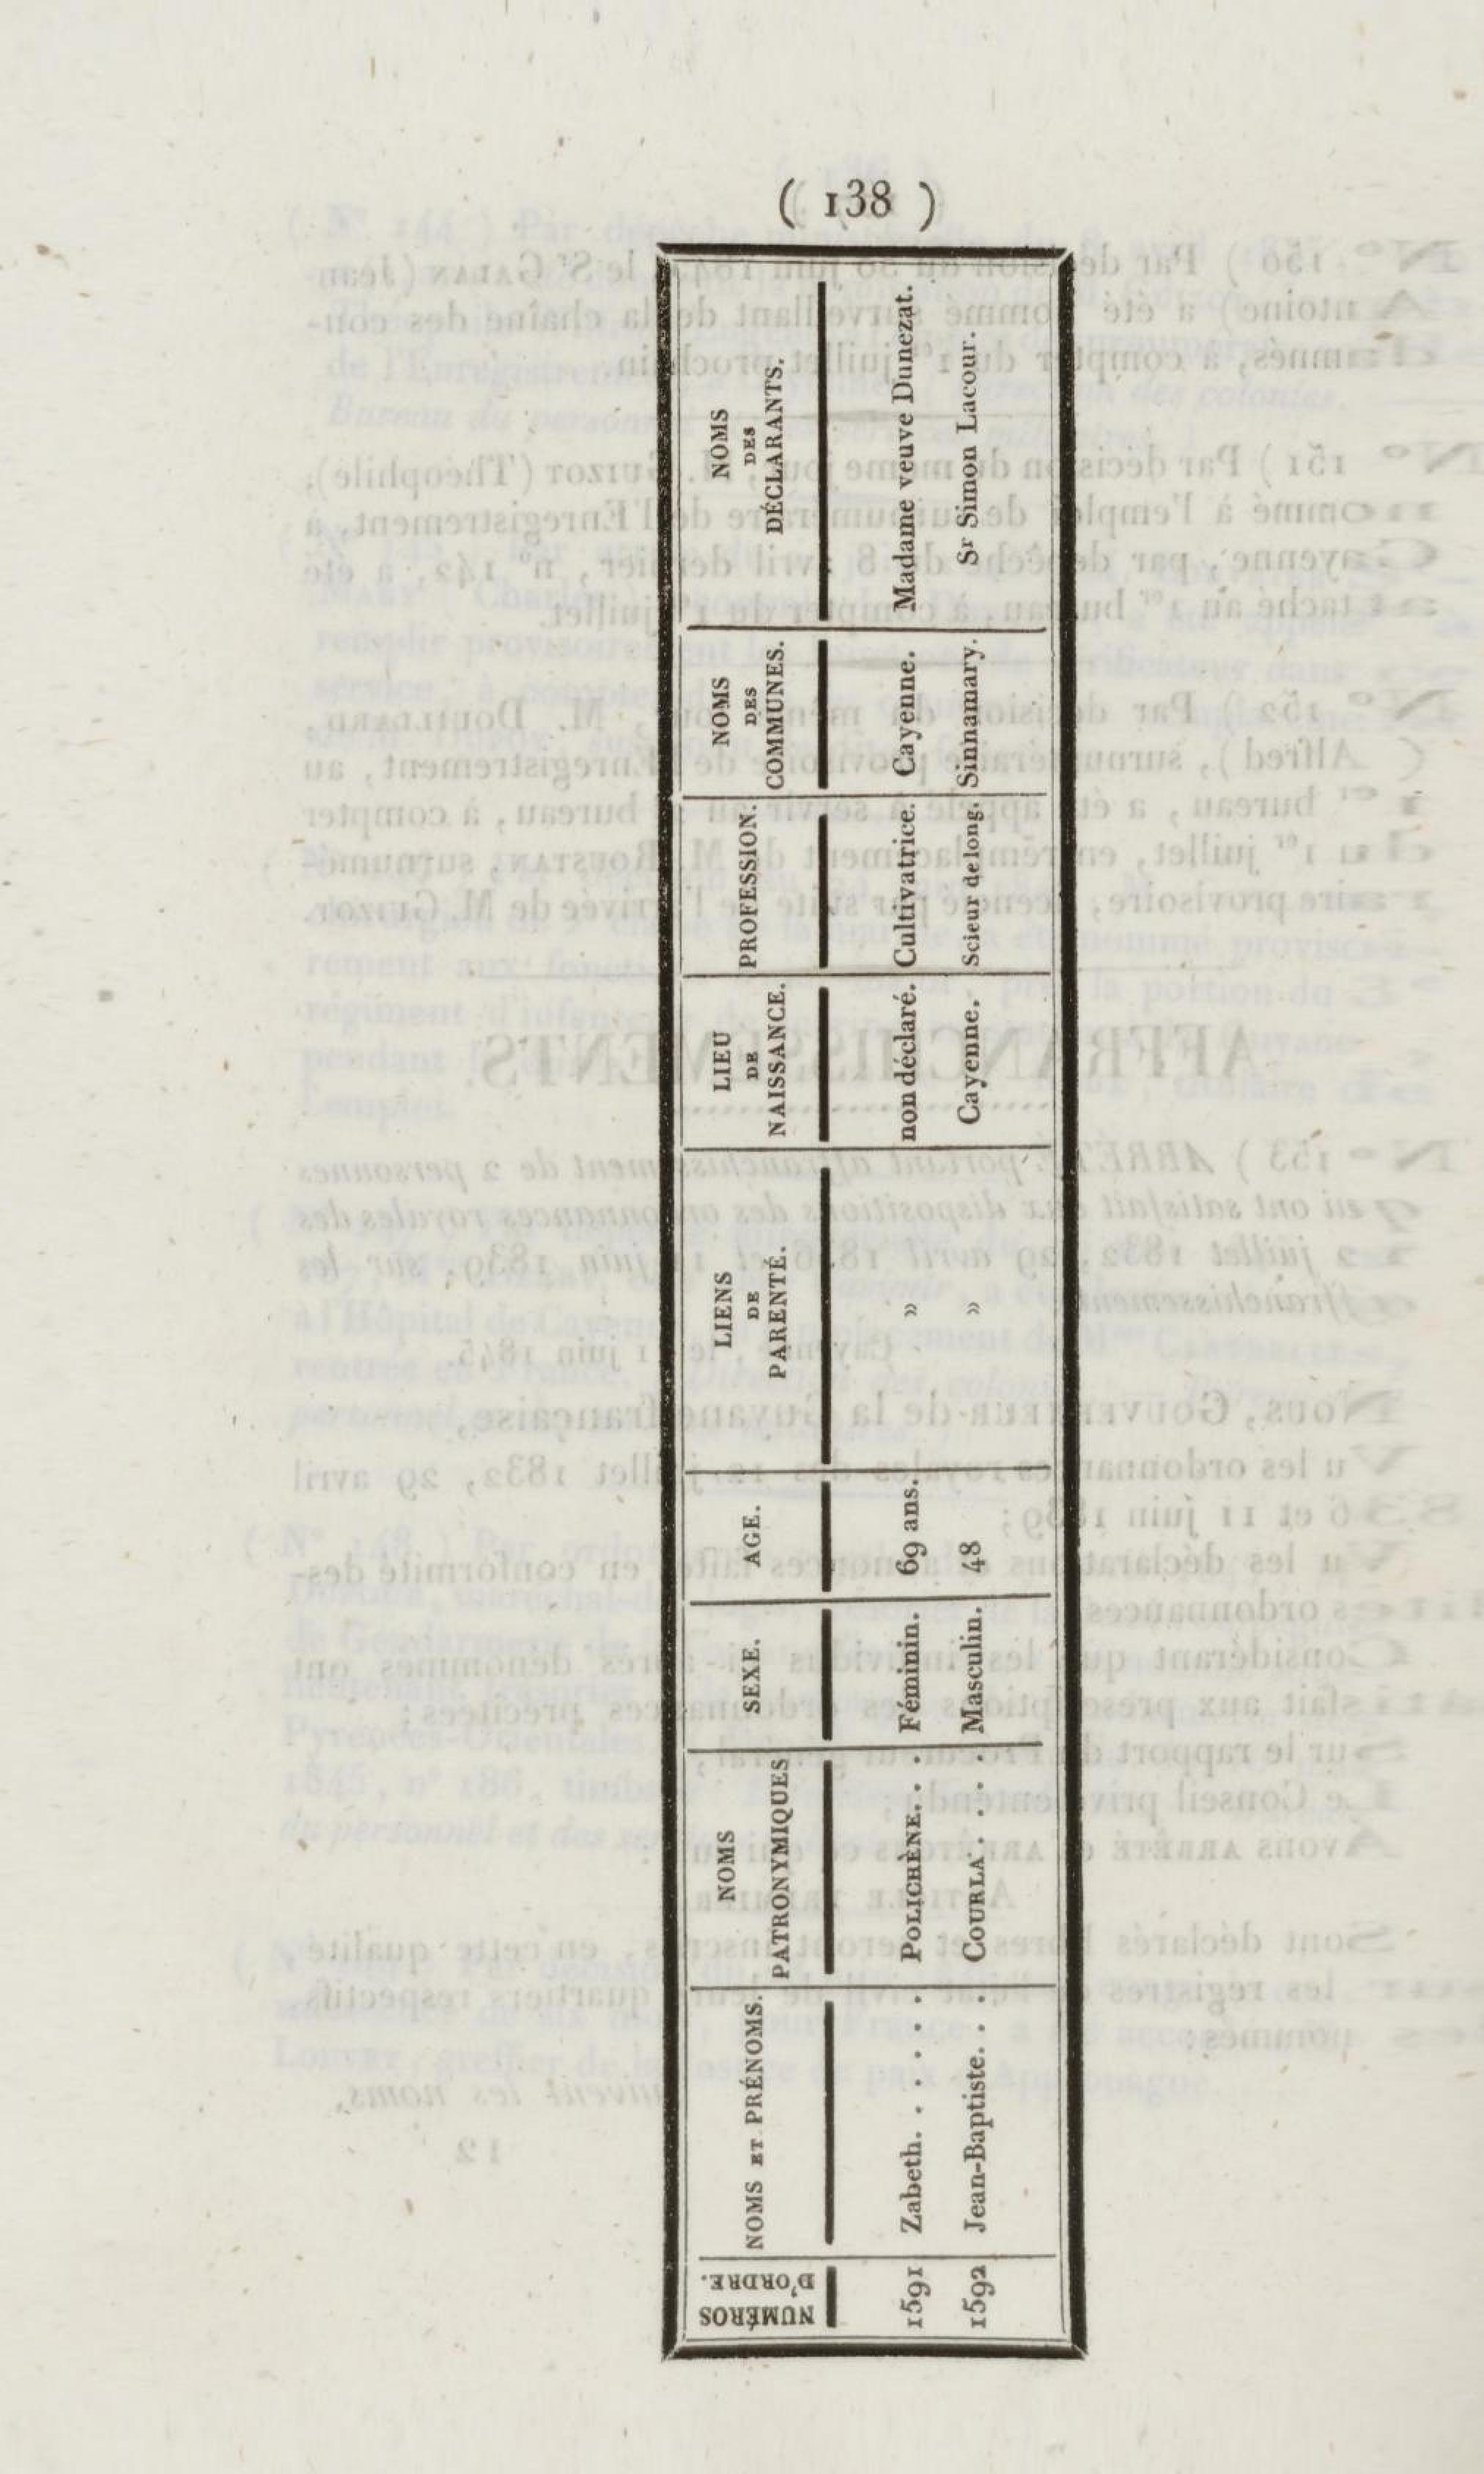 ( 138 )
NUMÉROS D'ORDRE. | NOMS ET PRÉNOMS. | NOMS PATRONYMIQUES | SEXE. | AGE. | LIENS DE PARENTÉ. | LIEU DE NAISSANCE. | PROFESSION. | NOMS DES COMMUNES. | NOMS DES DÉCLARANTS.
1591 | Zabeth. . . . . . | POLICHÈNE. . . | Féminin. | 69 ans. | » | non déclaré. | Cultivatrice. | Cayenne. | Madame veuve Dunezat.
1592 | Jean-Baptiste. . . | COURLA . . . . | Masculin. | 48 | » | Cayenne. | Scieur de long. | Sinnamary. | Sr Simon Lacour.